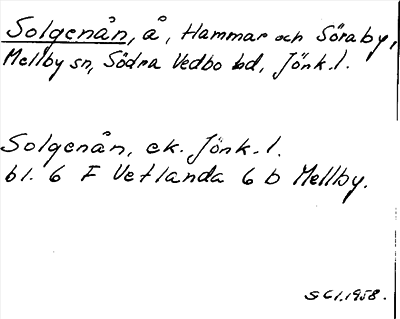 Solgenån, å, Hammar och Söraby,
Mellby sn, Södra Vedbo hd, Jönk.l.
Solgenån, ek. Jönk.l.
bl. 6 F Vetlanda 6 b Mellby.
SGl.1958.